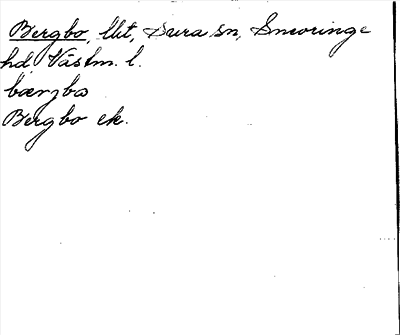 Bergbo, lht, Sura sn, Snevringe
hd, Västm. l.
bærjbω
Bergbo ek.